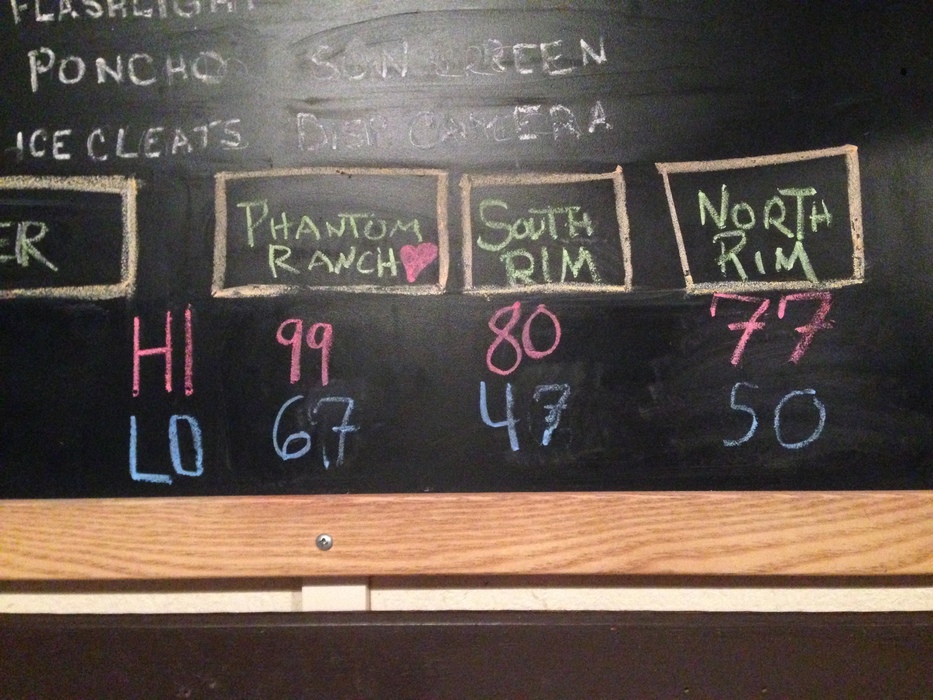 FLASHLIGHT
PONCHO SUNSCREEN
ICE CLEATS DISP CAMERA
ER
PHANTOM RANCH
SOUTH RIM
NORTH RIM
HI 99 80 77
LO 67 47 50